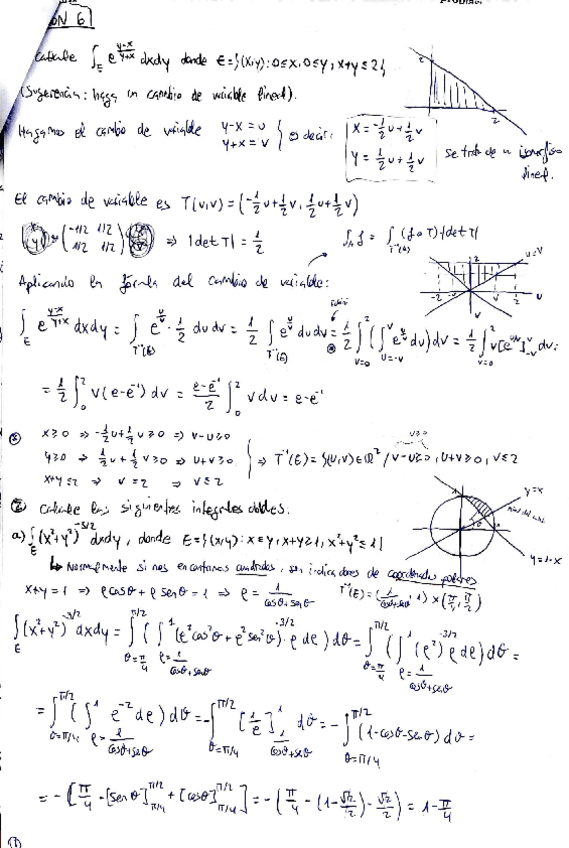 ON 6
Calcule ∫_E e^{(y-x)/(y+x)} dxdy donde E={(x,y): 0≤x, 0≤y, x+y≤2}
(Sugerencia: haga un cambio de variable lineal).
2
2
Hagamos el cambio de variable y-x=u
y+x=v } es decir: x=-1/2 u+1/2 v
y=1/2 u+1/2 v
se trata de un isomorfismo lineal.
El cambio de variable es T(u,v)=(-1/2 u+1/2 v, 1/2 u+1/2 v)
(-1/2 1/2
1/2 1/2) ⇒ |det T|=1/2
∫_A f = ∫_{T^{-1}(A)} (f∘T)|det T|
Aplicando la fórmula del cambio de variable:
u=v
-2 -v v 2 u
∫_E e^{(y-x)/(y+x)} dxdy = ∫_{T^{-1}(E)} e^{u/v} · 1/2 dudv = 1/2 ∫_{T^{-1}(E)} e^{u/v} dudv = 1/2 ∫_{v=0}^2 (∫_{u=-v}^v e^{u/v} du) dv = 1/2 ∫_{v=0}^2 v[e^{u/v}]_{-v}^v dv =
= 1/2 ∫_0^2 v(e-e^{-1}) dv = (e-e^{-1})/2 ∫_0^2 v dv = e-e^{-1}
x≥0 ⇒ -1/2 u+1/2 v ≥0 ⇒ v-u≥0
y≥0 ⇒ 1/2 u+1/2 v ≥0 ⇒ u+v≥0
x+y≤2 ⇒ v=2 ⇒ v≤2
} ⇒ T^{-1}(E)={(u,v)∈ℝ² / v-u≥0, u+v≥0, v≤2
v≥0
② Calcule las siguientes integrales dobles.
a) ∫_E (x²+y²)^{-3/2} dxdy, donde E={(x,y): x≤y, x+y≥1, x²+y²≤1}
y=x
y=1-x
↳ Normalmente si nos encontramos cuadrados, son indicadores de coordenadas polares
x+y=1 ⇒ ρcosθ+ρ senθ=1 ⇒ ρ=1/(cosθ+senθ) T^{-1}(E)=(1/(cosθ+senθ), 1)×(π/4, π/2)
∫_E (x²+y²)^{-3/2} dxdy = ∫_{θ=π/4}^{π/2} (∫_{ρ=1/(cosθ+senθ)}^1 (ρ²cos²θ+ρ²sen²θ)^{-3/2} · ρ dρ) dθ = ∫_{θ=π/4}^{π/2} (∫_{ρ=1/(cosθ+senθ)}^1 (ρ²)^{-3/2} ρ dρ) dθ =
= ∫_{θ=π/4}^{π/2} (∫_{ρ=1/(cosθ+senθ)}^1 ρ^{-2} dρ) dθ = -∫_{θ=π/4}^{π/2} [1/ρ]_{1/(cosθ+senθ)}^1 dθ = -∫_{θ=π/4}^{π/2} (1-cosθ-senθ) dθ =
= -[π/4 - [senθ]_{π/4}^{π/2} + [cosθ]_{π/4}^{π/2}] = -(π/4 - (1-√2/2) - √2/2) = 1-π/4